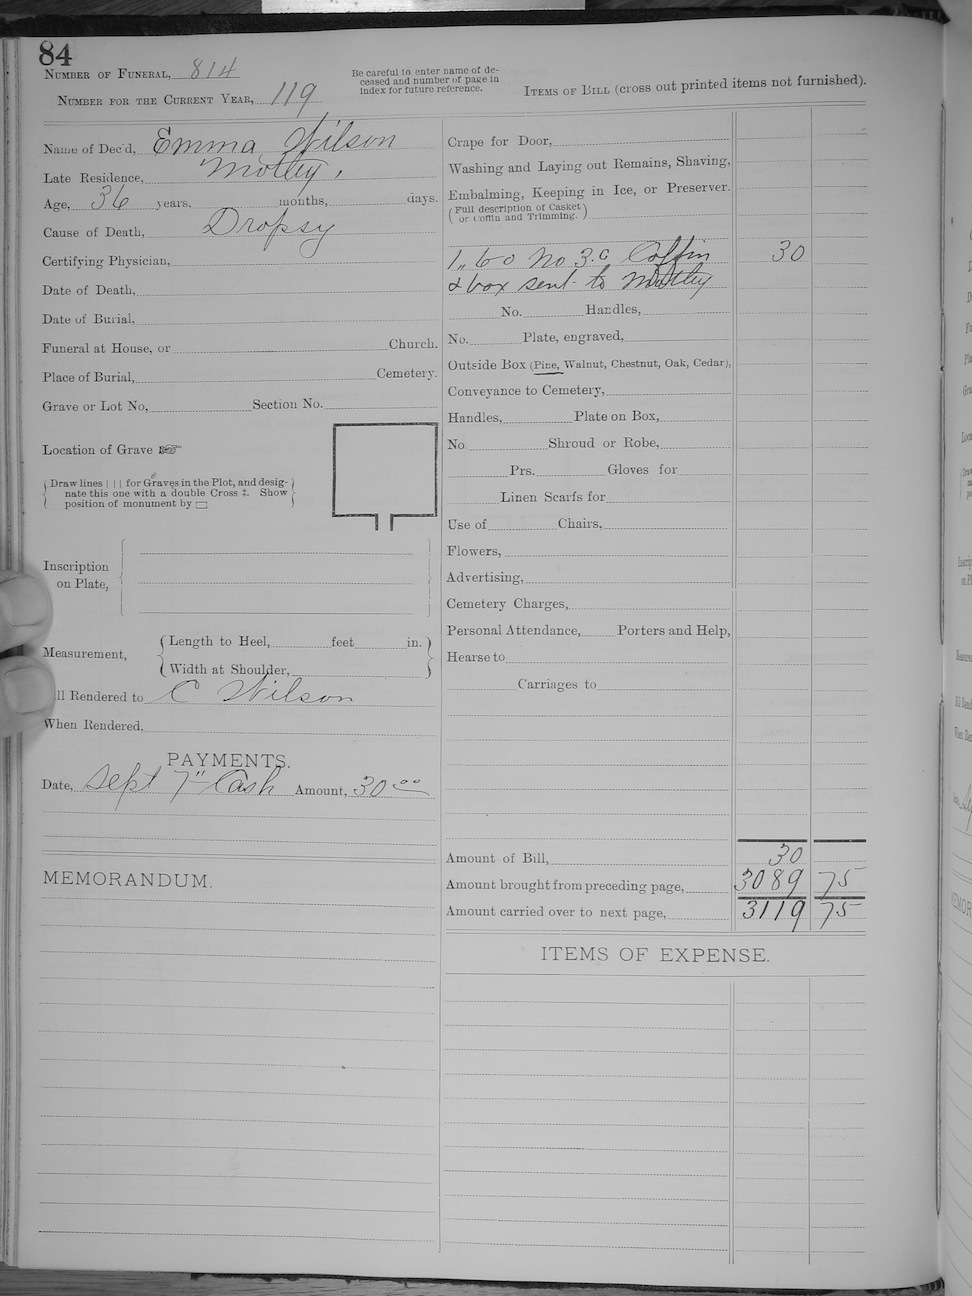 84
NUMBER OF FUNERAL, 814
NUMBER FOR THE CURRENT YEAR, 119
Be careful to enter name of de-
ceased and number of page in
index for future reference.
Name of Dec'd, Emma Wilson
Late Residence, Motley,
Age, 36 years, months, days.
Cause of Death, Dropsy
Certifying Physician,
Date of Death,
Date of Burial,
Funeral at House, or Church.
Place of Burial, Cemetery.
Grave or Lot No, Section No.
Location of Grave ☞
Draw lines | | | for Graves in the Plot, and desig-
nate this one with a double Cross ‡. Show
position of monument by ▭
Inscription
on Plate,
Measurement,
Length to Heel, feet in.
Width at Shoulder,
ll Rendered to C Wilson
When Rendered,
PAYMENTS.
Date, Sept 7" Cash Amount, 30 00
MEMORANDUM.
ITEMS OF BILL (cross out printed items not furnished).
Crape for Door,
Washing and Laying out Remains, Shaving,
Embalming, Keeping in Ice, or Preserver.
(Full description of Casket
or Coffin and Trimming.)
1,, 6 0 No 3.C Coffin 30
& box sent to Motley
No. Handles,
No. Plate, engraved,
Outside Box (Pine, Walnut, Chestnut, Oak, Cedar),
Conveyance to Cemetery,
Handles, Plate on Box,
No. Shroud or Robe,
Prs. Gloves for
Linen Scarfs for
Use of Chairs,
Flowers,
Advertising,
Cemetery Charges,
Personal Attendance, Porters and Help,
Hearse to
Carriages to
Amount of Bill, 30
Amount brought from preceding page, 3089 75
Amount carried over to next page, 3119 75
ITEMS OF EXPENSE.